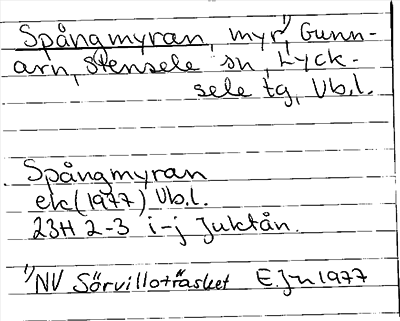 Spångmyran, myr¹⁾, Gunn-
arn, Stensele sn, Lyck-
sele tg, Vb.l.
Spångmyran
ek (1977) Vb.l.
23H 2-3 i-j Juktån.
¹⁾NV Sörvilloträsket E.Jn 1977